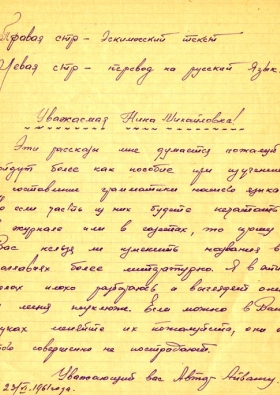 Правая стр - Эскимосский текст
Левая стр - перевод на русский язык.
Уважаемая Нина Михайловна!
Эти рассказы мне думается пожалуй
пойдут более как пособие при изучении
и составлении грамматики нашего языка.
Но если часть из них будете печатать
в журнале или в газетах, то прошу
Вас нельзя ли изменить названия в
заглавиях более литературно. Я в этих
делах плохо разбираюсь и выглядят они
у меня неуклюже. Если можно в Ваших
руках меняйте их пожалуйста, они от
этого совершенно не пострадают.
Уважающий вас Автор - Айвангу.
23/VI. 1961 года.